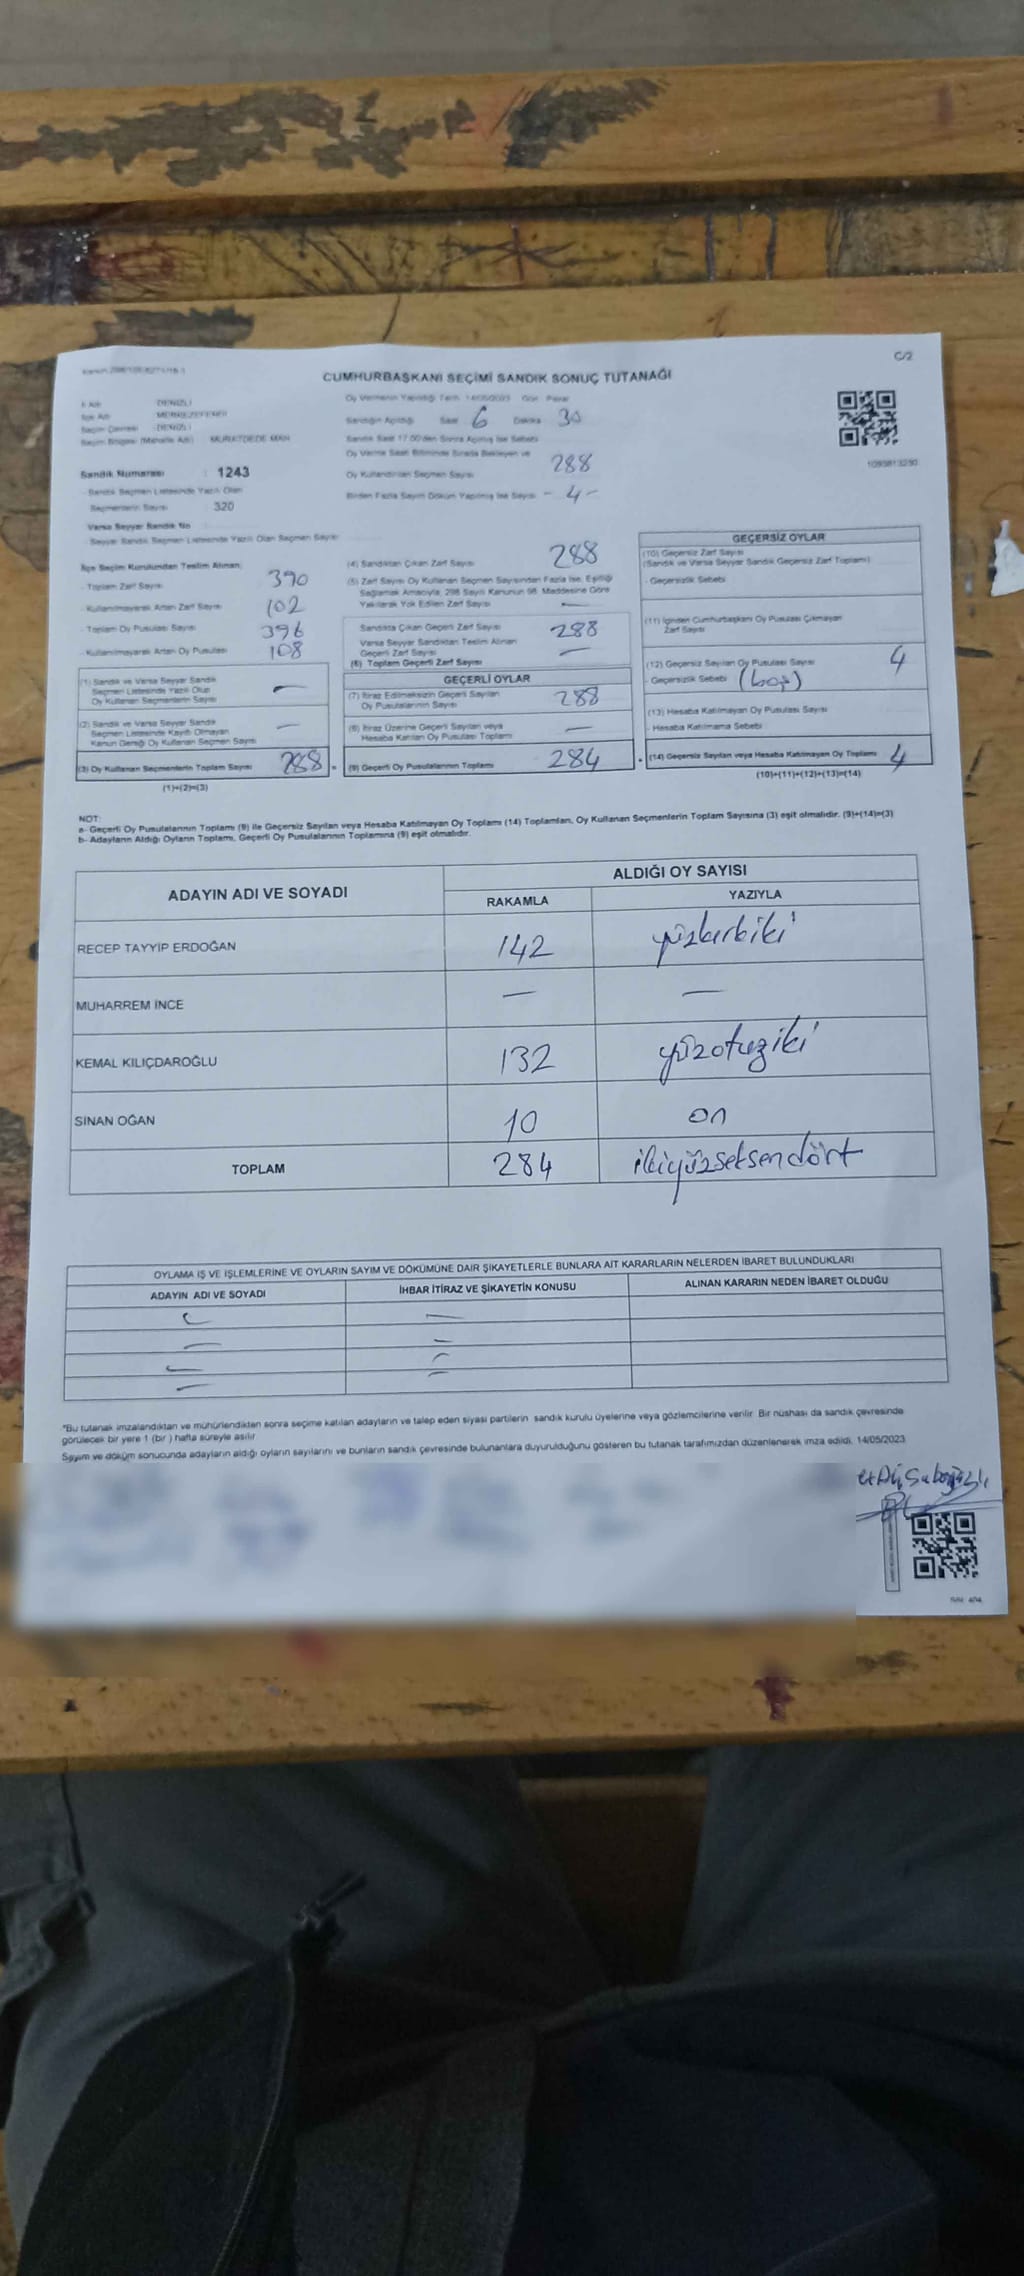 C/2
CUMHURBAŞKANI SEÇİMİ SANDIK SONUÇ TUTANAĞI
İl Adı : DENİZLİ
İlçe Adı : MERKEZEFENDİ
Seçim Çevresi : DENİZLİ
Seçim Bölgesi (Mahalle Adı) : MURATDEDE MAH
Sandık Numarası : 1243
- Sandık Seçmen Listesinde Yazılı Olan
Seçmenlerin Sayısı : 320
Varsa Seyyar Sandık No
- Seyyar Sandık Seçmen Listesinde Yazılı Olan Seçmen Sayısı
Oy Vermenin Yapıldığı Tarih: 14/05/2023 Gün: Pazar
Sandığın Açıldığı Saat 6 Dakika 30
Sandık Saat 17.00'den Sonra Açılmış İse Sebebi
Oy Verme Saati Bitiminde Sırada Bekleyen ve
Oy Kullandırılan Seçmen Sayısı 288
Birden Fazla Sayım Döküm Yapılmış İse Sayısı - 4 -
İlçe Seçim Kurulundan Teslim Alınan:
- Toplam Zarf Sayısı 390
- Kullanılmayarak Artan Zarf Sayısı 102
- Toplam Oy Pusulası Sayısı 396
- Kullanılmayarak Artan Oy Pusulası 108
(1) Sandık ve Varsa Seyyar Sandık
Seçmen Listesinde Yazılı Olup
Oy Kullanan Seçmenlerin Sayısı —
(2) Sandık ve Varsa Seyyar Sandık
Seçmen Listesinde Kayıtlı Olmayan
Kanun Gereği Oy Kullanan Seçmen Sayısı —
(3) Oy Kullanan Seçmenlerin Toplam Sayısı 288
(1)+(2)=(3)
(4) Sandıktan Çıkan Zarf Sayısı 288
(5) Zarf Sayısı Oy Kullanan Seçmen Sayısından Fazla İse, Eşitliği
Sağlamak Amacıyla, 298 Sayılı Kanunun 98. Maddesine Göre
Yakılarak Yok Edilen Zarf Sayısı —
Sandıkta Çıkan Geçerli Zarf Sayısı 288
Varsa Seyyar Sandıktan Teslim Alınan
Geçerli Zarf Sayısı —
(6) Toplam Geçerli Zarf Sayısı
GEÇERLİ OYLAR
(7) İtiraz Edilmeksizin Geçerli Sayılan
Oy Pusulasının Sayısı 288
(8) İtiraz Üzerine Geçerli Sayılan veya
Hesaba Katılan Oy Pusulası Toplamı —
(9) Geçerli Oy Pusulalarının Toplamı 284
GEÇERSİZ OYLAR
(10) Geçersiz Zarf Sayısı
(Sandık ve Varsa Seyyar Sandık Geçersiz Zarf Toplamı)
- Geçersizlik Sebebi
(11) İçinden Cumhurbaşkanı Oy Pusulası Çıkmayan
Zarf Sayısı
(12) Geçersiz Sayılan Oy Pusulası Sayısı 4
- Geçersizlik Sebebi (boş)
(13) Hesaba Katılmayan Oy Pusulası Sayısı
- Hesaba Katılmama Sebebi
(14) Geçersiz Sayılan veya Hesaba Katılmayan Oy Toplamı 4
(10)+(11)+(12)+(13)=(14)
NOT:
a- Geçerli Oy Pusulalarının Toplamı (9) ile Geçersiz Sayılan veya Hesaba Katılmayan Oy Toplamı (14) Toplamları, Oy Kullanan Seçmenlerin Toplam Sayısına (3) eşit olmalıdır. (9)+(14)=(3)
b- Adayların Aldığı Oyların Toplamı, Geçerli Oy Pusulalarının Toplamına (9) eşit olmalıdır.
ADAYIN ADI VE SOYADI
ALDIĞI OY SAYISI
RAKAMLA YAZIYLA
RECEP TAYYİP ERDOĞAN 142 yüzkırkiki
MUHARREM İNCE — —
KEMAL KILIÇDAROĞLU 132 yüzotuziki
SİNAN OĞAN 10 on
TOPLAM 284 ikiyüzseksendört
OYLAMA İŞ VE İŞLEMLERİNE VE OYLARIN SAYIM VE DÖKÜMÜNE DAİR ŞİKAYETLERLE BUNLARA AİT KARARLARIN NELERDEN İBARET BULUNDUKLARI
ADAYIN ADI VE SOYADI İHBAR İTİRAZ VE ŞİKAYETİN KONUSU ALINAN KARARIN NEDEN İBARET OLDUĞU
*Bu tutanak imzalandıktan ve mühürlendikten sonra seçime katılan adayların ve talep eden siyasi partilerin sandık kurulu üyelerine veya gözlemcilerine verilir. Bir nüshası da sandık çevresinde
görülecek bir yere 1 (bir ) hafta süreyle asılır
Sayım ve döküm sonucunda adayların aldığı oyların sayılarını ve bunların sandık çevresinde bulunanlara duyurulduğunu gösteren bu tutanak tarafımızdan düzenlenerek imza edildi. 14/05/2023